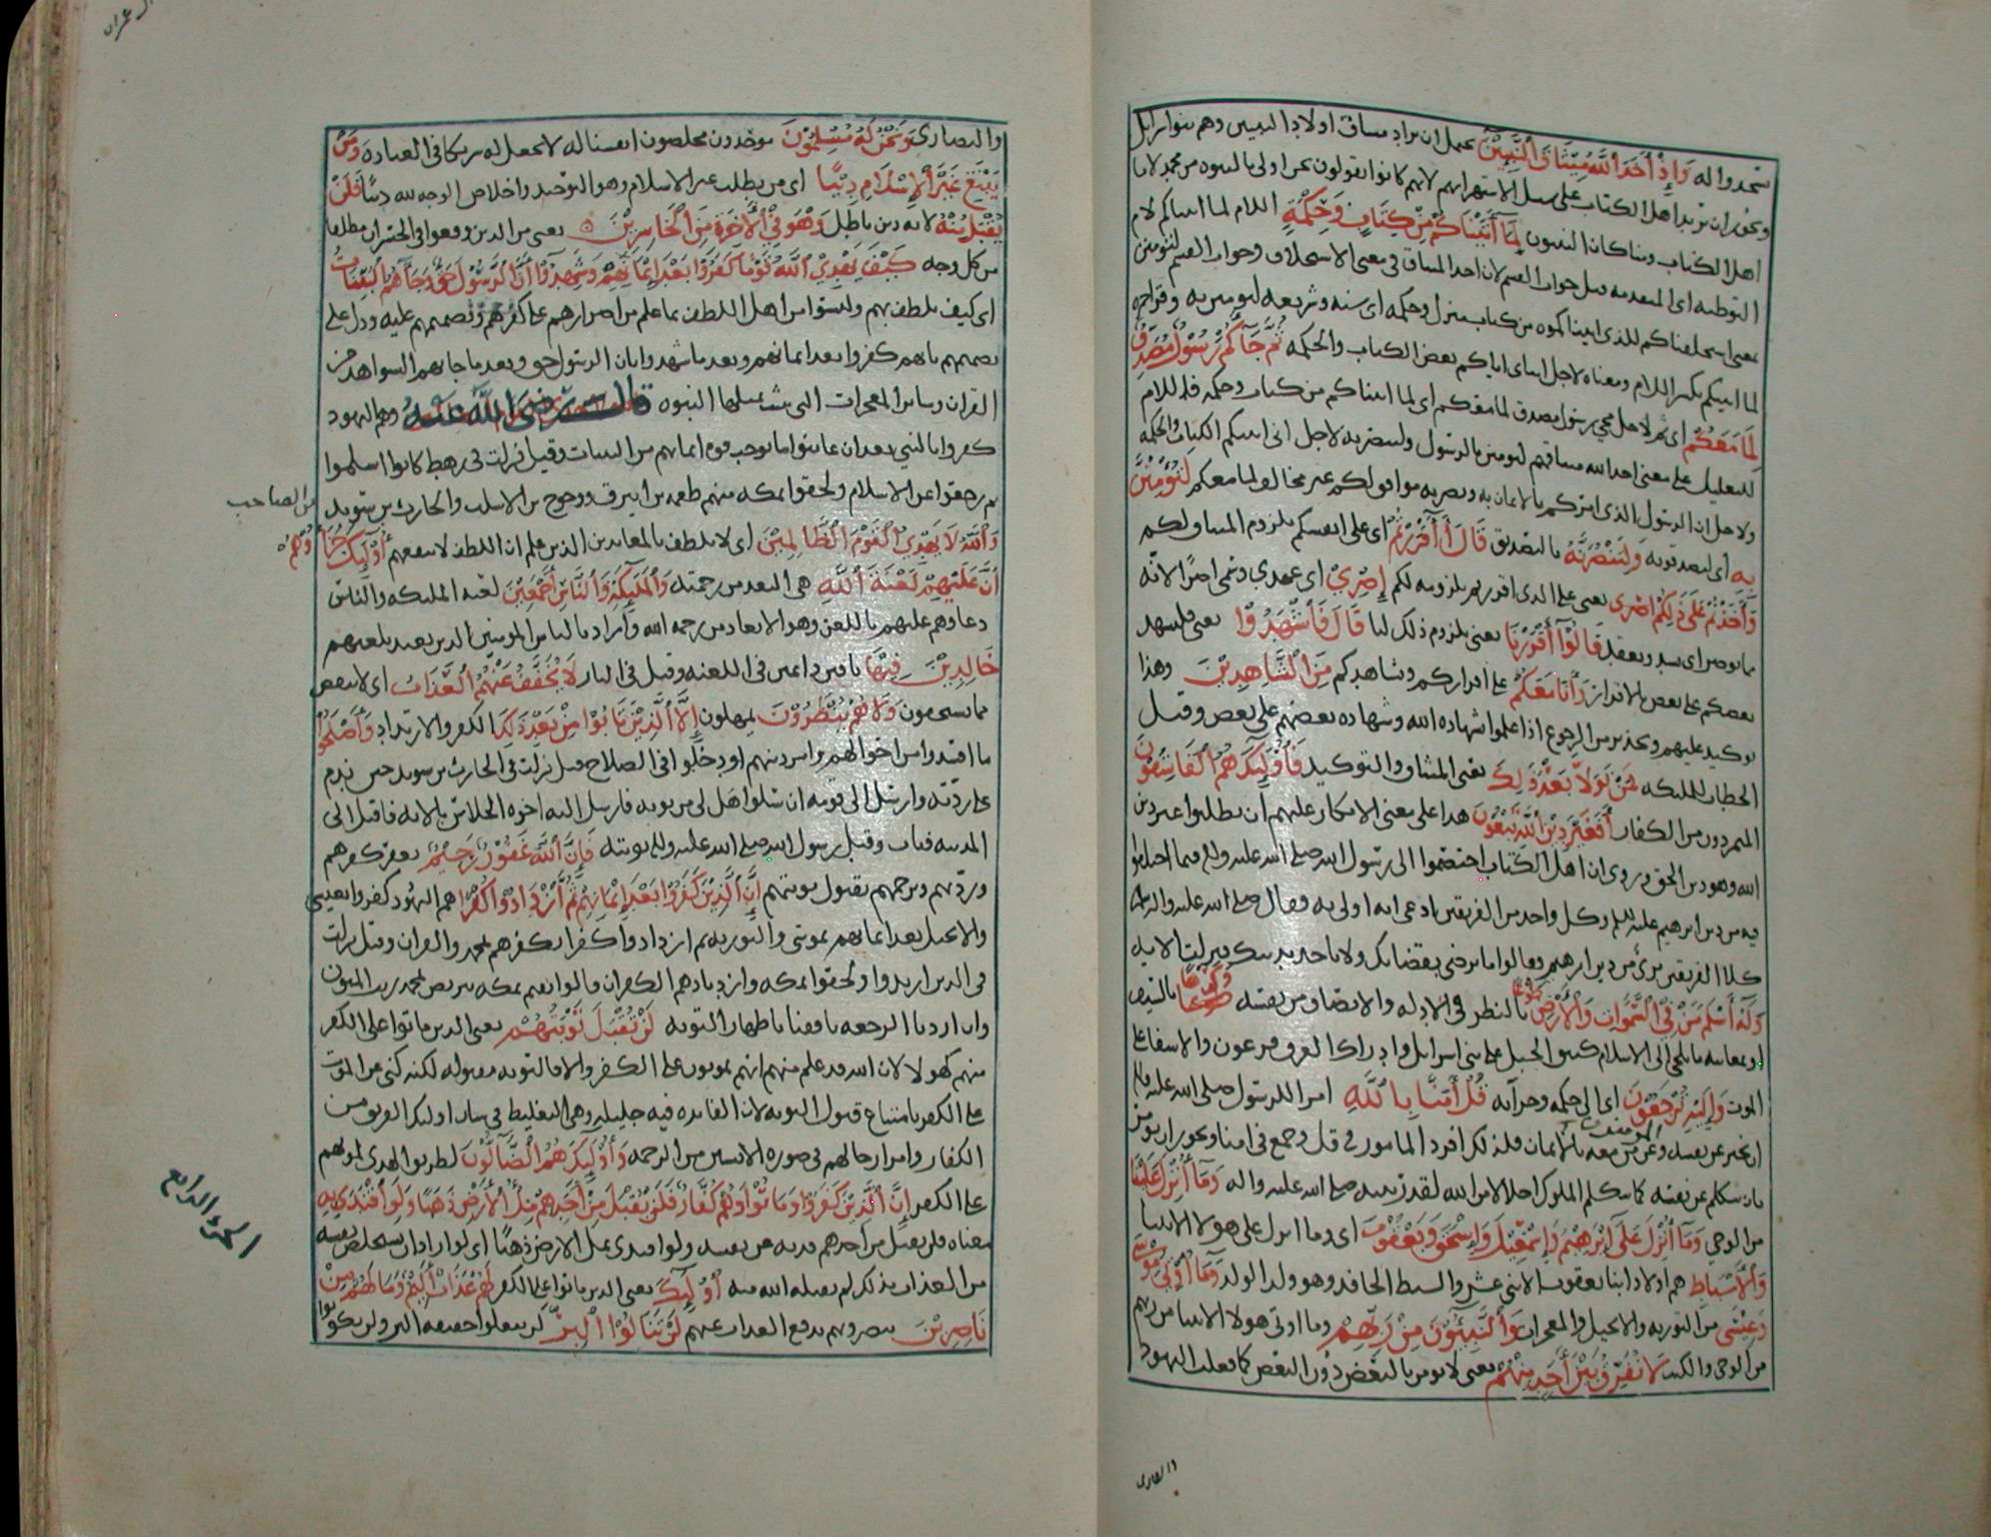 يتخذوا له وَإِذْ أَخَذَ ٱللَّهُ مِيثَاقَ ٱلنَّبِيِّينَ يحتمل ان يراد ميثاق اولاد النبيين وهم بنو اسرايل
ويجوز ان يريد اهل الكتاب على سبيل الاستهزا بهم لانهم كانوا يقولون نحن اولى بالنبوه من محمد لانا
اهل الكتاب ومنا كان النبيون لَمَا آتَيْنَاكُم مِّن كِتَابٍ وَحِكْمَةٍ اللام لما اتيناكم لام
التوطيه اى المتقدمه قبل جواب القسم لان اخذ الميثاق في معنى الاستحلاف وجواب القسم لتومنن
معنى استحلفناكم للذى اتيناكموه من كتاب منزل وحكمه اى سنه وشريعه لتومنن به وقرا حمزه
لما اتيتكم بكسر اللام ومعناه لاجل ايتاى اياكم بعض الكتاب والحكمه ثُمَّ جَآءَكُمْ رَسُولٌ مُصَدِّقٌ
لِّمَا مَعَكُمْ اى ثم لاجل مجى رسول مصدق لما معكم اى لما اتيناكم من كتاب وحكمه فاللام
للتعليل على معنى اخذ الله ميثاقهم لتومنن بالرسول ولتنصرنه لاجل انى اتيتكم الكتاب والحكمه
ولاجل ان الرسول الذى امركم بالايمان به ونصرته موافق لكم غير مخالف لما معكم لَتُؤْمِنُنَّ
بِهِ اى لتصدقونه وَلَتَنْصُرُنَّهُ بالتصديق قَالَ أَأَقْرَرْتُمْ اى على انفسكم بلزوم الميثاق لكم
وَأَخَذْتُمْ عَلَى ذَلِكُمْ إِصْرِى يعنى على الذى اقررتم بلزومه لكم إِصْرِى اى عهدى وسمى اصرا لانه
مما يوصر اى يشد ويعقد قَالُوٓا أَقْرَرْنَا يعنى بلزوم ذلك لنا قَالَ فَٱشْهَدُوا يعنى فليشهد
بعضكم على بعض بالاقرار وَأَنَا مَعَكُمْ على اقراركم وتشاهدكم مِنَ ٱلشَّاهِدِينَ وهذا
توكيد عليهم وتحذير من الرجوع اذا علموا شهاده الله وشهاده بعضهم على بعض وقيل
الخطاب للمليكه فَمَنْ تَوَلَّى بَعْدَ ذَلِكَ يعنى الميثاق والتوكيد فَأُولَئِكَ هُمُ ٱلْفَاسِقُونَ
المتمردون من الكفار أَفَغَيْرَ دِينِ ٱللَّهِ يَبْغُونَ هذا على معنى الانكار عليهم ان يطلبوا غير دين
الله وهو دين الحق وروى ان اهل الكتاب اختصموا الى رسول الله صلى الله عليه واله فيما اختلفوا
فيه من دين ابرهيم عليه السلم وكل واحد من الفريقين ادعى انه اولى به فقال صلى الله عليه واله
كلا الفريقين برى من دين ابرهيم فقالوا ما نرضى بقضائك ولا ناخذ بدينك فنزلت الايه
وَلَهُ أَسْلَمَ مَنْ فِى ٱلسَّمَوَاتِ وَٱلْأَرْضِ طَوْعًا بالنظر في الادله والانصاف من نفسه وَكَرْهًا بالسيف
او بمعاينه ما يلجى الى الاسلام كنتق الجبل على بنى اسرايل وادراك الغرق فرعون والاشفا على
الموت وَإِلَيْهِ تُرْجَعُونَ اى الى حكمه وجزائه قُلْ آمَنَّا بِٱللَّهِ امر الرسول صلى الله عليه واله
ان يخبر عن نفسه وعن من معه من المومنين بالايمان فلذلك افرد المامور في قل وجمع في امنا ويجوز ان يومر
بان يتكلم عن نفسه كما يتكلم الملوك اجلالا من الله لقدر نبيه صلى الله عليه واله وَمَا أُنْزِلَ عَلَيْنَا
من الوحى وَمَا أُنْزِلَ عَلَى إِبْرَهِيمَ وَإِسْمَعِيلَ وَإِسْحَقَ وَيَعْقُوبَ اى وما انزل على هولا الانبيا
وَٱلْأَسْبَاطِ هم اولاد ابنا يعقوب الاثنى عشر والسبط الحافد وهو ولد الولد وَمَا أُوتِىَ مُوسَى
وَعِيسَى من التوريه والانجيل والمعجزات وَٱلنَّبِيُّونَ مِنْ رَبِّهِمْ وما اوتى هولا الانبيا من ربهم
من الوحى والكتب لَا نُفَرِّقُ بَيْنَ أَحَدٍ مِنْهُمْ يعنى لا نومن بالبعض دون البعض كما فعلت اليهود
والنصارى وَنَحْنُ لَهُ مُسْلِمُونَ موحدون مخلصون انفسنا له لا نجعل له شريكا في العباده وَمَنْ
يَبْتَغِ غَيْرَ ٱلْإِسْلَامِ دِينًا اى من يطلب غير الاسلام وهو التوحيد واخلاص الوجه لله دينًا فَلَنْ
يُقْبَلَ مِنْهُ لانه دين باطل وَهُوَ فِى ٱلْآخِرَةِ مِنَ ٱلْخَاسِرِينَ يعنى من الذين وقعوا في الخسران مطلقا
من كل وجه كَيْفَ يَهْدِى ٱللَّهُ قَوْمًا كَفَرُوا بَعْدَ إِيمَانِهِمْ وَشَهِدُوٓا أَنَّ ٱلرَّسُولَ حَقٌّ وَجَآءَهُمُ ٱلْبَيِّنَاتُ
اى كيف يلطف بهم وليسوا من اهل اللطف لما علم من اصرارهم على كفرهم وتصميمهم عليه ودل على
تصميمهم بانهم كفروا بعد ايمانهم وبعد ما شهدوا بان الرسول حق وبعد ما جاتهم الشواهد من
القران وساير المعجزات التى يثبت بمثلها النبوه قال رضى الله عنه وهم اليهود
كفروا بالنبي بعد ان عاينوا ما يوجب قوه ايمانهم من البينات وقيل نزلت في رهط كانوا اسلموا
ثم رجعوا عن الاسلام ولحقوا بمكه منهم طعمه بن ابيرق ووحوح بن الاسلت والحارث بن سويد
من الصاحب
وَٱللَّهُ لَا يَهْدِى ٱلْقَوْمَ ٱلظَّالِمِينَ اى لا يلطف بالمعاندين الذين علم ان اللطف لا ينفعهم أُولَئِكَ جَزَآؤُهُمْ
أَنَّ عَلَيْهِمْ لَعْنَةَ ٱللَّهِ هى البعد من رحمته وَٱلْمَلَئِكَةِ وَٱلنَّاسِ أَجْمَعِينَ لعنه المليكه والناس
دعاوهم عليهم باللعن وهو الابعاد من رحمه الله واراد بالناس المومنين الذين يعتد بلعنهم
خَالِدِينَ فِيهَا باقين دايمين في اللعنه وقيل في النار لَا يُخَفَّفُ عَنْهُمُ ٱلْعَذَابُ اى لا ينقص
مما يستحقون وَلَا هُمْ يُنْظَرُونَ يمهلون إِلَّا ٱلَّذِينَ تَابُوا مِنْ بَعْدِ ذَلِكَ الكفر والارتداد وَأَصْلَحُوا
ما افسدوا من احوالهم وامر دينهم او دخلوا في الصلاح قيل نزلت في الحارث بن سويد حين ندم
على ردته وارسل الى قومه ان سلوا هل لى من توبه فارسل اليه اخوه الجلاس بالايه فاقبل الى
المدينه فتاب وقبل رسول الله صلى الله عليه واله توبته فَإِنَّ ٱللَّهَ غَفُورٌ رَحِيمٌ يغفر كفرهم
وردتهم ويرحمهم بقبول توبتهم إِنَّ ٱلَّذِينَ كَفَرُوا بَعْدَ إِيمَانِهِمْ ثُمَّ ٱزْدَادُوا كُفْرًا هم اليهود كفروا بعيسى
والانجيل بعد ايمانهم بموسى والتوريه ثم ازدادوا كفرا بكفرهم بمحمد والقران وقيل نزلت
في الذين ارتدوا ولحقوا بمكه وازديادهم الكفر ان قالوا نقيم بمكه نتربص بمحمد ريب المنون
وان اردنا الرجعه نافقنا باظهار التوبه لَنْ تُقْبَلَ تَوْبَتُهُمْ يعنى الذين ماتوا على الكفر
منهم كهولا لان الله قد علم منهم انهم يموتون على الكفر والا فالتوبه مقبوله لكنه كنى عن الموت
على الكفر بامتناع قبول التوبه لان الفايده فيه جليله وهى التغليظ في شان اوليك الفريق من
الكفار وابراز حالهم في صوره الايسين من الرحمه وَأُولَئِكَ هُمُ ٱلضَّآلُّونَ لطريق الهدى لموتهم
على الكفر إِنَّ ٱلَّذِينَ كَفَرُوا وَمَاتُوا وَهُمْ كُفَّارٌ فَلَنْ يُقْبَلَ مِنْ أَحَدِهِمْ مِلْءُ ٱلْأَرْضِ ذَهَبًا وَلَوِ ٱفْتَدَى بِهِ
الجزء الرابع
معناه فلن يقبل من احدهم فديه عن نفسه ولو افتدى بمل الارض ذهبًا اى لو اراد ان يستخلص نفسه
من العذاب بذلك لم يقبله الله منه أُولَئِكَ يعنى الذين ماتوا على الكفر لَهُمْ عَذَابٌ أَلِيمٌ وَمَا لَهُمْ مِنْ
نَاصِرِينَ ينصرونهم بدفع العذاب عنهم لَنْ تَنَالُوا ٱلْبِرَّ لن تبلغوا حقيقه البر ولن تكونوا